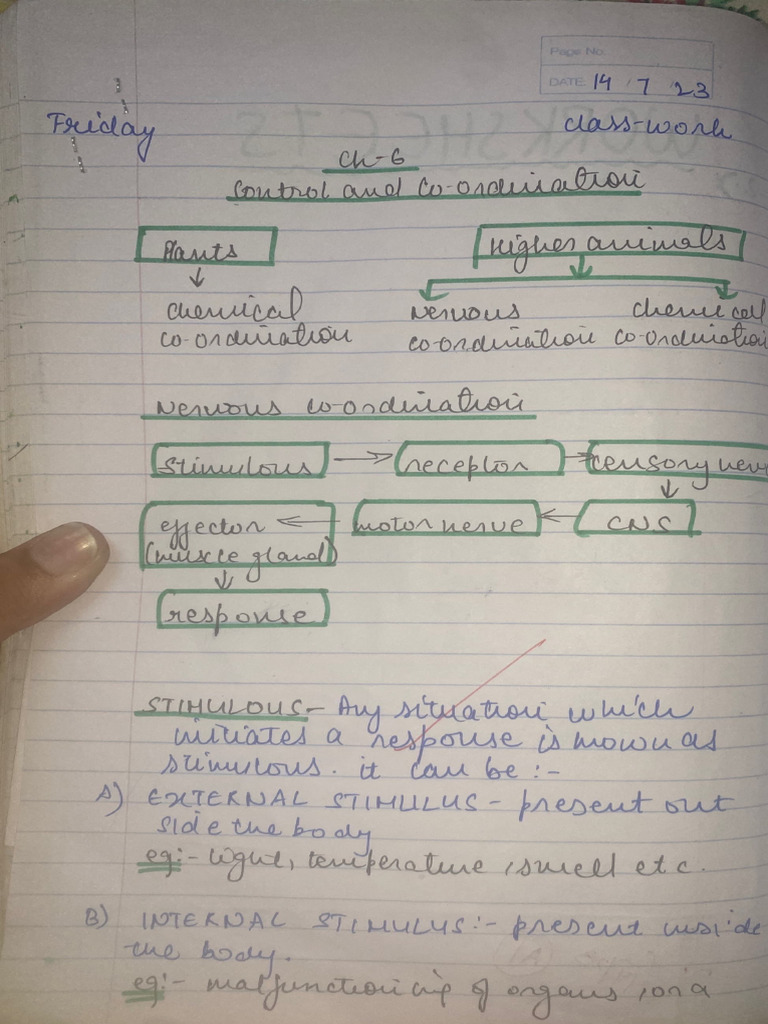 Page No.
DATE: 14 / 7 / 23
Friday class-work
Ch-6
Control and Co-ordination
Plants Higher animals
chemical Nervous chemical
co-ordination co-ordination co-ordination
Nervous co-ordination
Stimulous receptor sensory nerv
effector motor nerve CNS
(muscle gland)
response
STIMULOUS- Any situation which
initiates a response is known as
stimulous. it can be :-
A) EXTERNAL STIMULUS - present out
side the body
eg:- light, temperature, smell etc.
B) INTERNAL STIMULUS:- present inside
the body.
eg:- malfunctioning of organs,